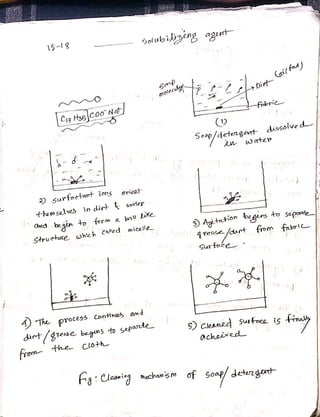 15-18
solubilizing agent
soap molecules
Dirt (oil fat)
Fabric
C17 H35 COO- Na+
(1)
Soap/detergent dissolved in water
2) surfactant ions orient themselves in dirt & water and begin to form a ball like structure which called micelle.
3) Agitation begins to separate grease/dirt from fabric surface.
4) The process continues and dirt/grease begins to separate from the cloth
5) Cleaned surface is finally acheived
Fig: Cleaning mechanism of soap/detergent